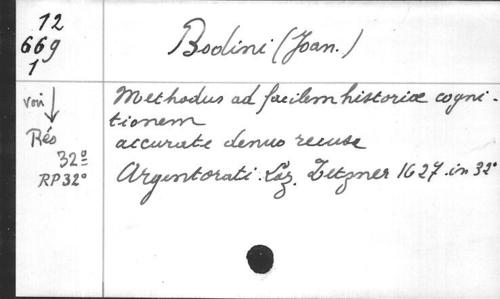 12
669
1
Bodini (Joan.)
voir
Rés
32º
RP 32º
Methodus ad facilem historiæ cogni-
tionem
accurate denuo recuse
Argentorati. Laz. Zetzner 1627. in 32º